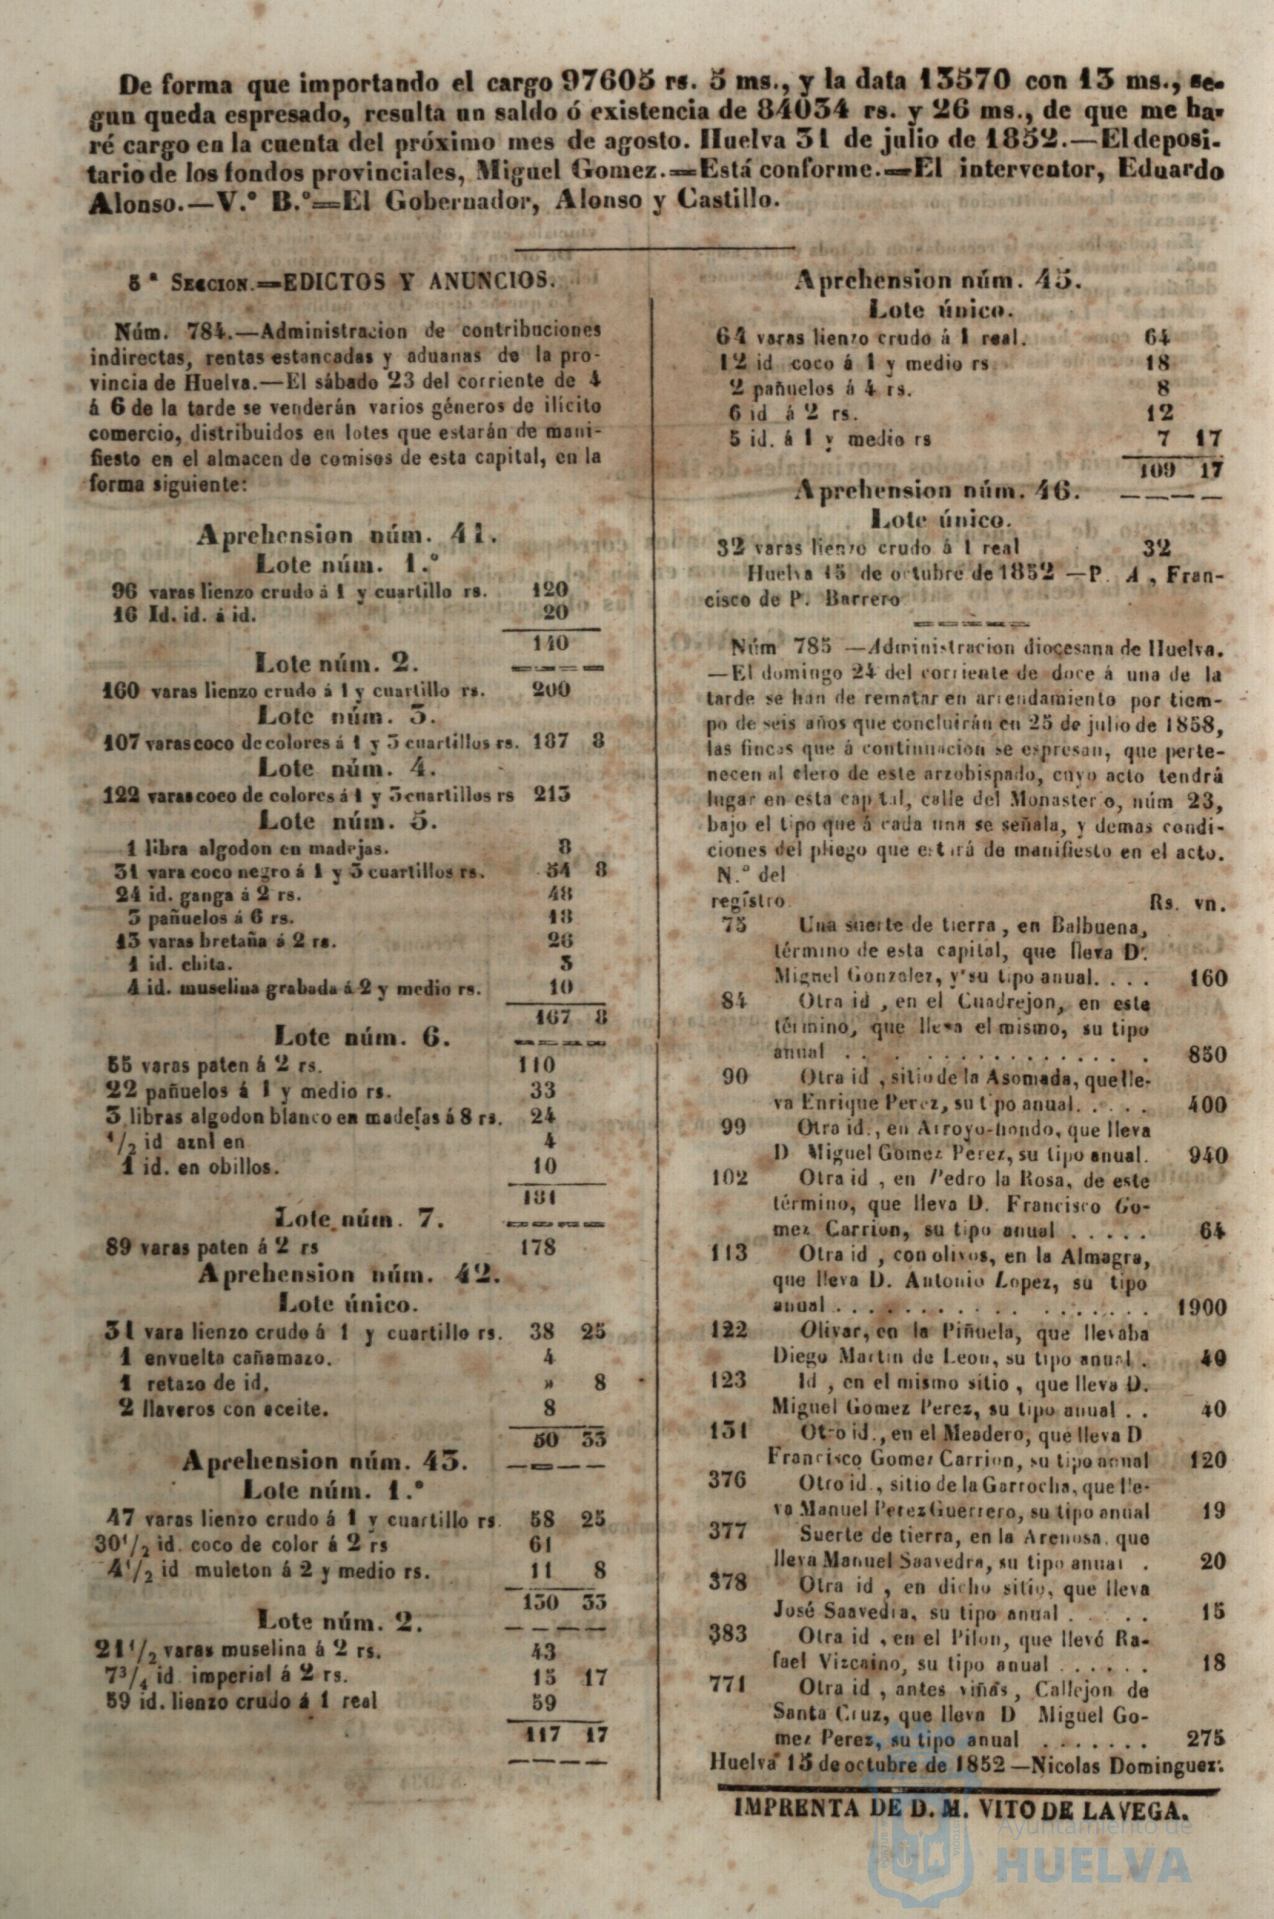 De forma que importando el cargo 97605 rs. 5 ms., y la data 13570 con 13 ms., se-
gun queda espresado, resulta un saldo ó existencia de 84034 rs. y 26 ms., de que me ha-
ré cargo en la cuenta del próximo mes de agosto. Huelva 31 de julio de 1852.—El deposi-
tario de los fondos provinciales, Miguel Gomez.—Está conforme.—El interventor, Eduardo
Alonso.—V.° B.°=El Gobernador, Alonso y Castillo.
5ª SECCION.=EDICTOS Y ANUNCIOS.
Núm. 784.—Administracion de contribuciones
indirectas, rentas estancadas y aduanas de la pro-
vincia de Huelva.—El sábado 23 del corriente de 4
á 6 de la tarde se venderán varios géneros de ilícito
comercio, distribuidos en lotes que estarán de mani-
fiesto en el almacen de comisos de esta capital, en la
forma siguiente:
Aprehension núm. 41.
Lote núm. 1.°
96 varas lienzo crudo á 1 y cuartillo rs. 120
16 Id. id. á id. 20
140
Lote núm. 2.
160 varas lienzo crudo á 1 y cuartillo rs. 200
Lote núm. 3.
107 varas coco de colores á 1 y 3 cuartillos rs. 187 8
Lote núm. 4.
122 varas coco de colores á 1 y 3 cuartillos rs 213
Lote núm. 5.
1 libra algodon en madejas. 8
31 vara coco negro á 1 y 3 cuartillos rs. 54 8
24 id. ganga á 2 rs. 48
3 pañuelos á 6 rs. 18
13 varas bretaña á 2 rs. 26
1 id. chita. 3
4 id. muselina grabada á 2 y medio rs. 10
167 8
Lote núm. 6.
55 varas paten á 2 rs. 110
22 pañuelos á 1 y medio rs. 33
3 libras algodon blanco en madejas á 8 rs. 24
1/2 id aznl en 4
1 id. en obillos. 10
181
Lote núm. 7.
89 varas paten á 2 rs 178
Aprehension núm. 42.
Lote único.
31 vara lienzo crudo á 1 y cuartillo rs. 38 25
1 envuelta cañamazo. 4
1 retazo de id. » 8
2 llaveros con aceite. 8
50 33
Aprehension núm. 43.
Lote núm. 1.°
47 varas lienzo crudo á 1 y cuartillo rs 58 25
30 1/2 id. coco de color á 2 rs 61
4 1/2 id muleton á 2 y medio rs. 11 8
130 33
Lote núm. 2.
21 1/2 varas muselina á 2 rs. 43
7 3/4 id imperial á 2 rs. 15 17
59 id. lienzo crudo á 1 real 59
117 17
Aprehension núm. 45.
Lote único.
64 varas lienzo crudo á 1 real. 64
12 id coco á 1 y medio rs 18
2 pañuelos á 4 rs. 8
6 id á 2 rs. 12
5 id. á 1 y medio rs 7 17
109 17
Aprehension núm. 46.
Lote único.
32 varas lienzo crudo á 1 real 32
Huelva 15 de octubre de 1852 —P. A., Fran-
cisco de P. Barrero
Núm 785 —Administracion diocesana de Huelva.
—El domingo 24 del corriente de doce á una de la
tarde se han de rematar en arrendamiento por tiem-
po de seis años que concluirán en 25 de julio de 1858,
las fincas que á continuacion se espresan, que perte-
necen al clero de este arzobispado, cuyo acto tendrá
lugar en esta capital, calle del Monasterio, núm 23,
bajo el tipo que á cada una se señala, y demas condi-
ciones del pliego que estará de manifiesto en el acto.
N.° del
registro. Rs. vn.
75 Una suerte de tierra, en Balbuena,
término de esta capital, que lleva D.
Miguel Gonzalez, y su tipo anual. . . . 160
84 Otra id , en el Cuadrejon, en este
término, que lleva el mismo, su tipo
anual . . . . . . . . . . . . . 850
90 Otra id , sitio de la Asomada, que lle-
va Enrique Perez, su tipo anual. . . . . 400
99 Otra id., en Arroyo-hondo, que lleva
D Miguel Gomez Perez, su tipo anual. 940
102 Otra id , en Pedro la Rosa, de este
término, que lleva D. Francisco Go-
mez Carrion, su tipo anual . . . . . 64
113 Otra id , con olivos, en la Almagra,
que lleva D. Antonio Lopez, su tipo
anual . . . . . . . . . . . . . . . . . 1900
122 Olivar, en la Piñuela, que llevaba
Diego Martin de Leon, su tipo anual . 40
123 Id , en el mismo sitio , que lleva D.
Miguel Gomez Perez, su tipo anual . . 40
131 Otro id., en el Meadero, que lleva D
Francisco Gomez Carrion, su tipo anual 120
376 Otro id , sitio de la Garrocha, que lle-
va Manuel Perez Guerrero, su tipo anual 19
377 Suerte de tierra, en la Arenosa, que
lleva Manuel Saavedra, su tipo anual . 20
378 Otra id , en dicho sitio, que lleva
José Saavedra, su tipo anual . . . . . 15
383 Otra id , en el Pilon, que llevó Ra-
fael Vizcaino, su tipo anual . . . . . . 18
771 Otra id , antes viñas, Callejon de
Santa Cruz, que lleva D Miguel Go-
mez Perez, su tipo anual . . . . . . . 275
Huelva 15 de octubre de 1852 —Nicolas Dominguez.
IMPRENTA DE D. M. VITO DE LA VEGA.
Ayuntamiento de
HUELVA